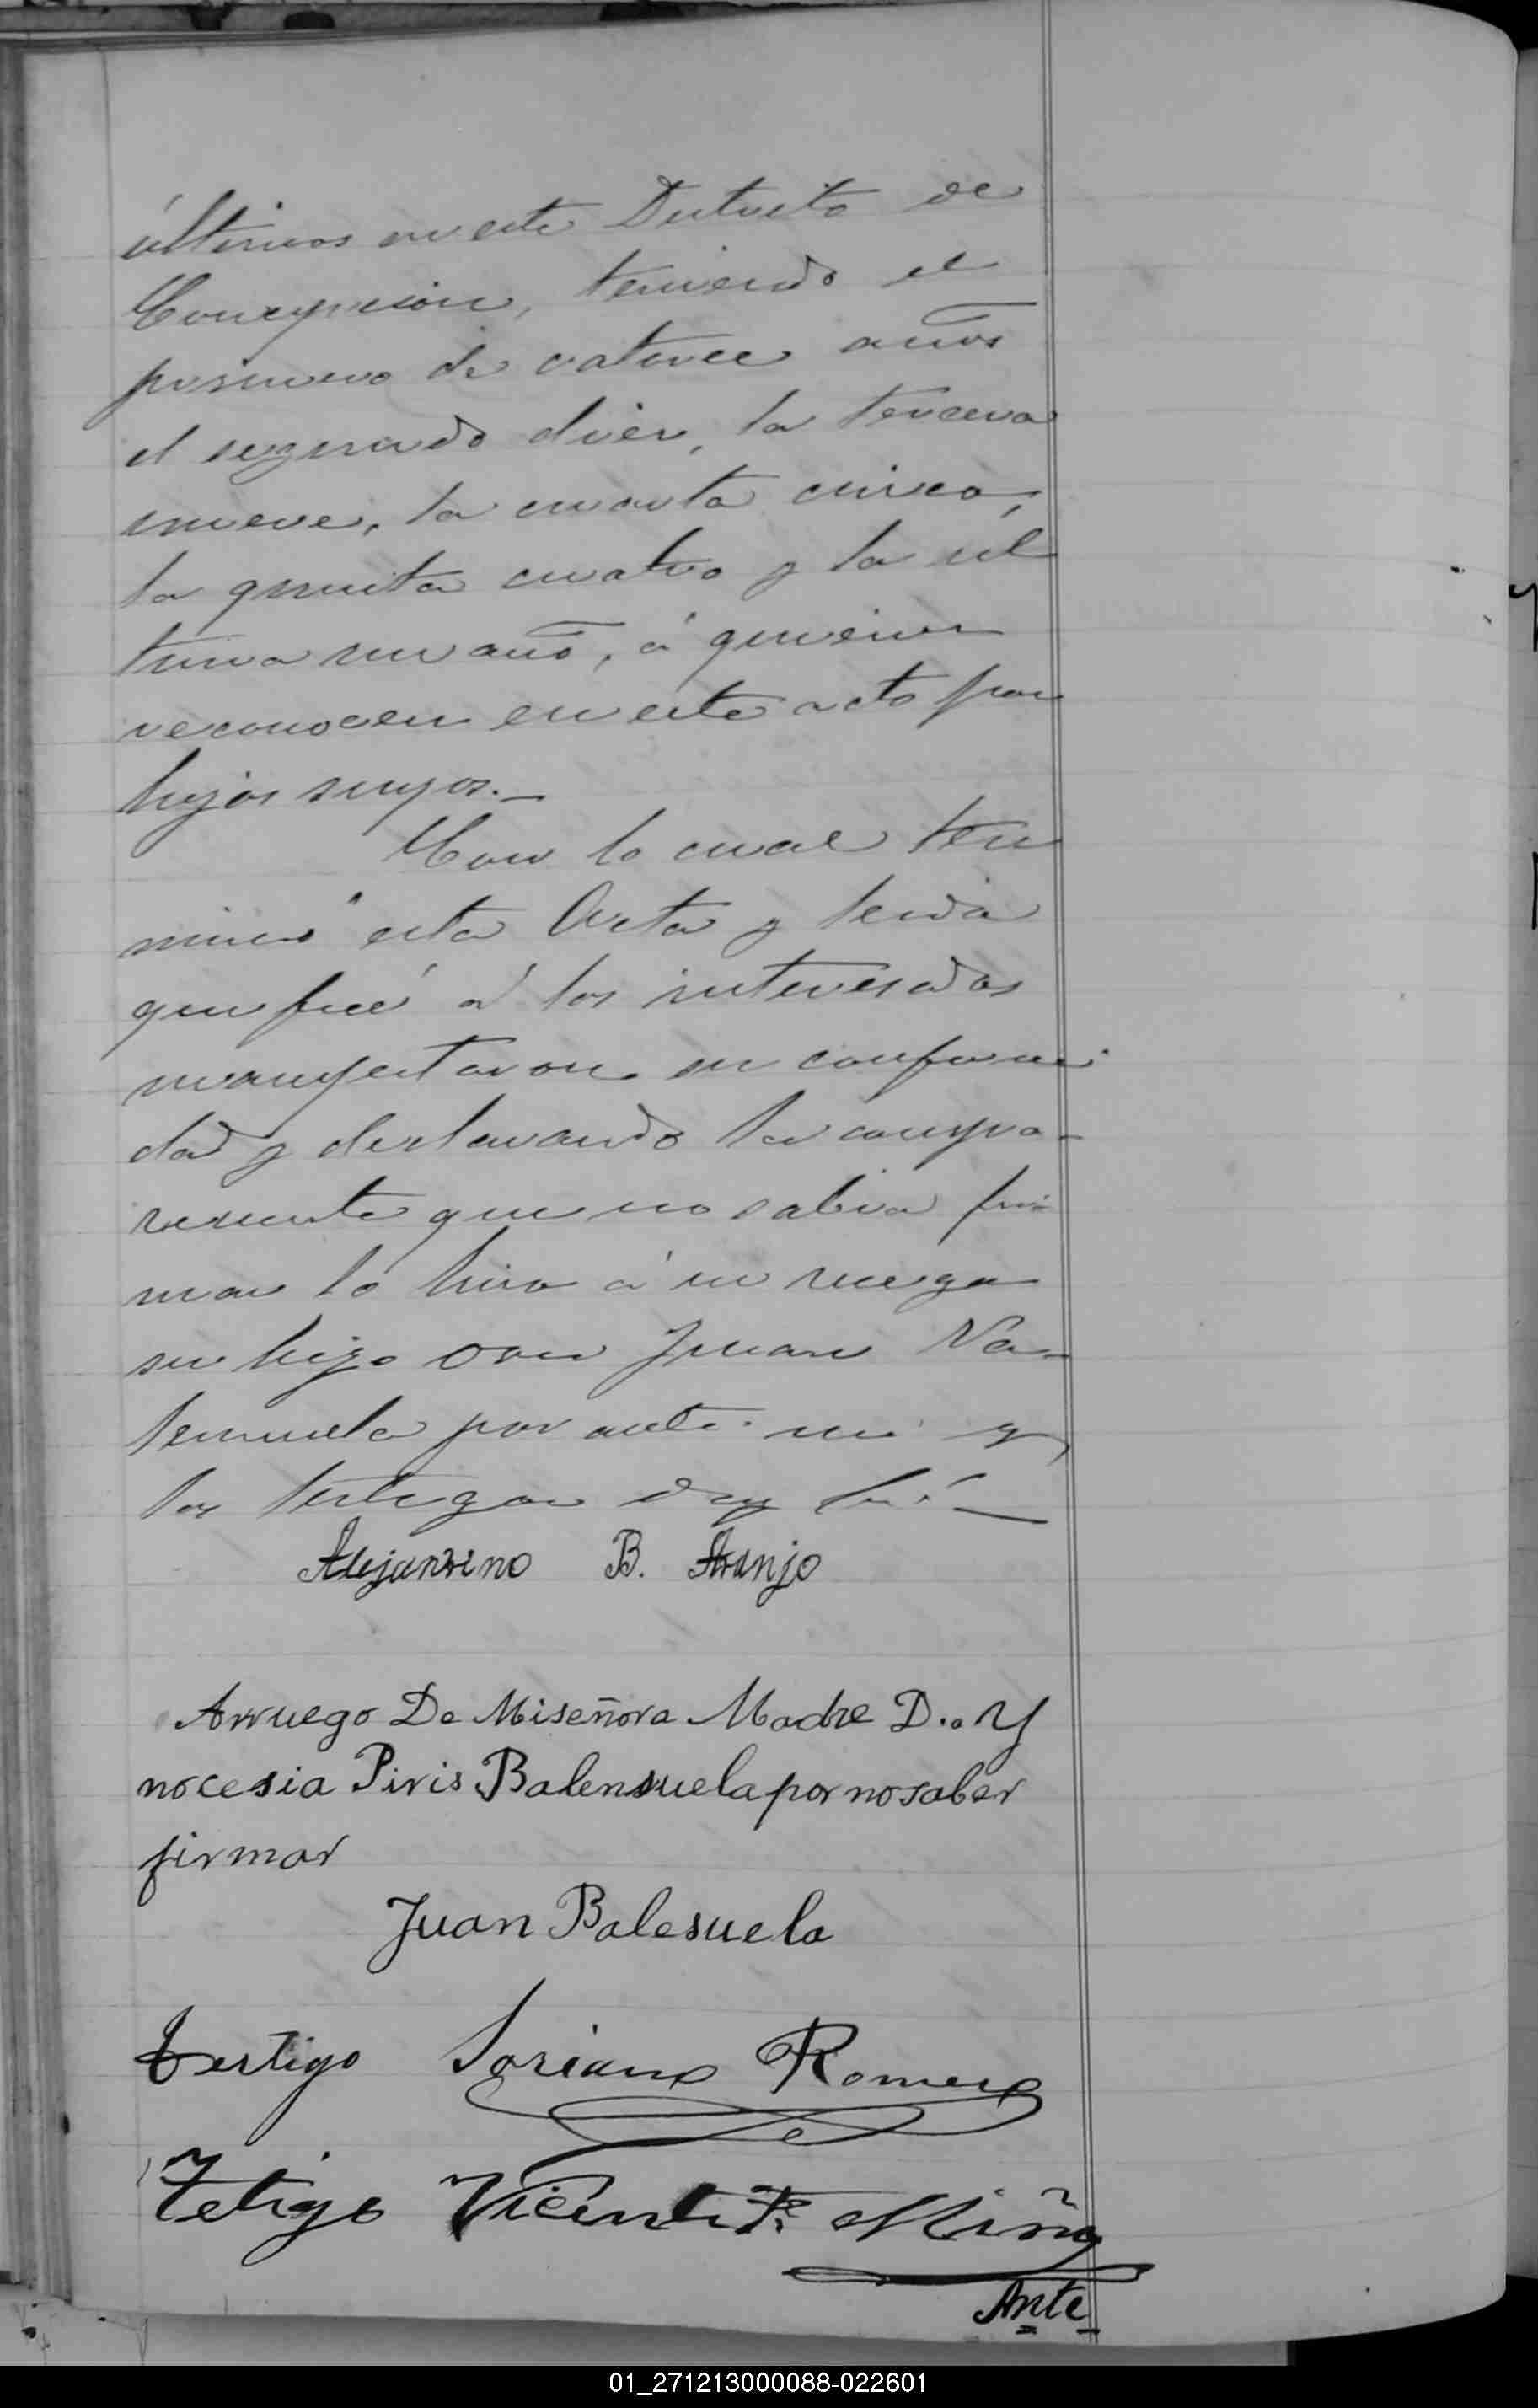 últimos en este Distrito de
Concepcion, teniendo el
primero de catorce años
el segundo diez, la tercera
nueve, la cuarta cinco,
la quinta cuatro y la úl
tima un año, á quienes
reconocen en este acto por
hijos suyos.—
Con lo cual ter
minó esta Acta y leida
que fué á los interesados
manifestaron su conformi
dad y declarando la compa-
reciente que no sabia fir
mar lo hizo á su ruego
su hijo Don Juan Va-
lenzuela por ante mi y
los testigos doy fé.—
Alejandrino B. Araujo
Arruego De Miseñora Madre D.a Y
nocesia Piris Balensuela por no saber
firmar
Juan Balesuela
Testigo Soriano Romero
Tetigo Vicente R. Miño
Ante
01_271213000088-022601